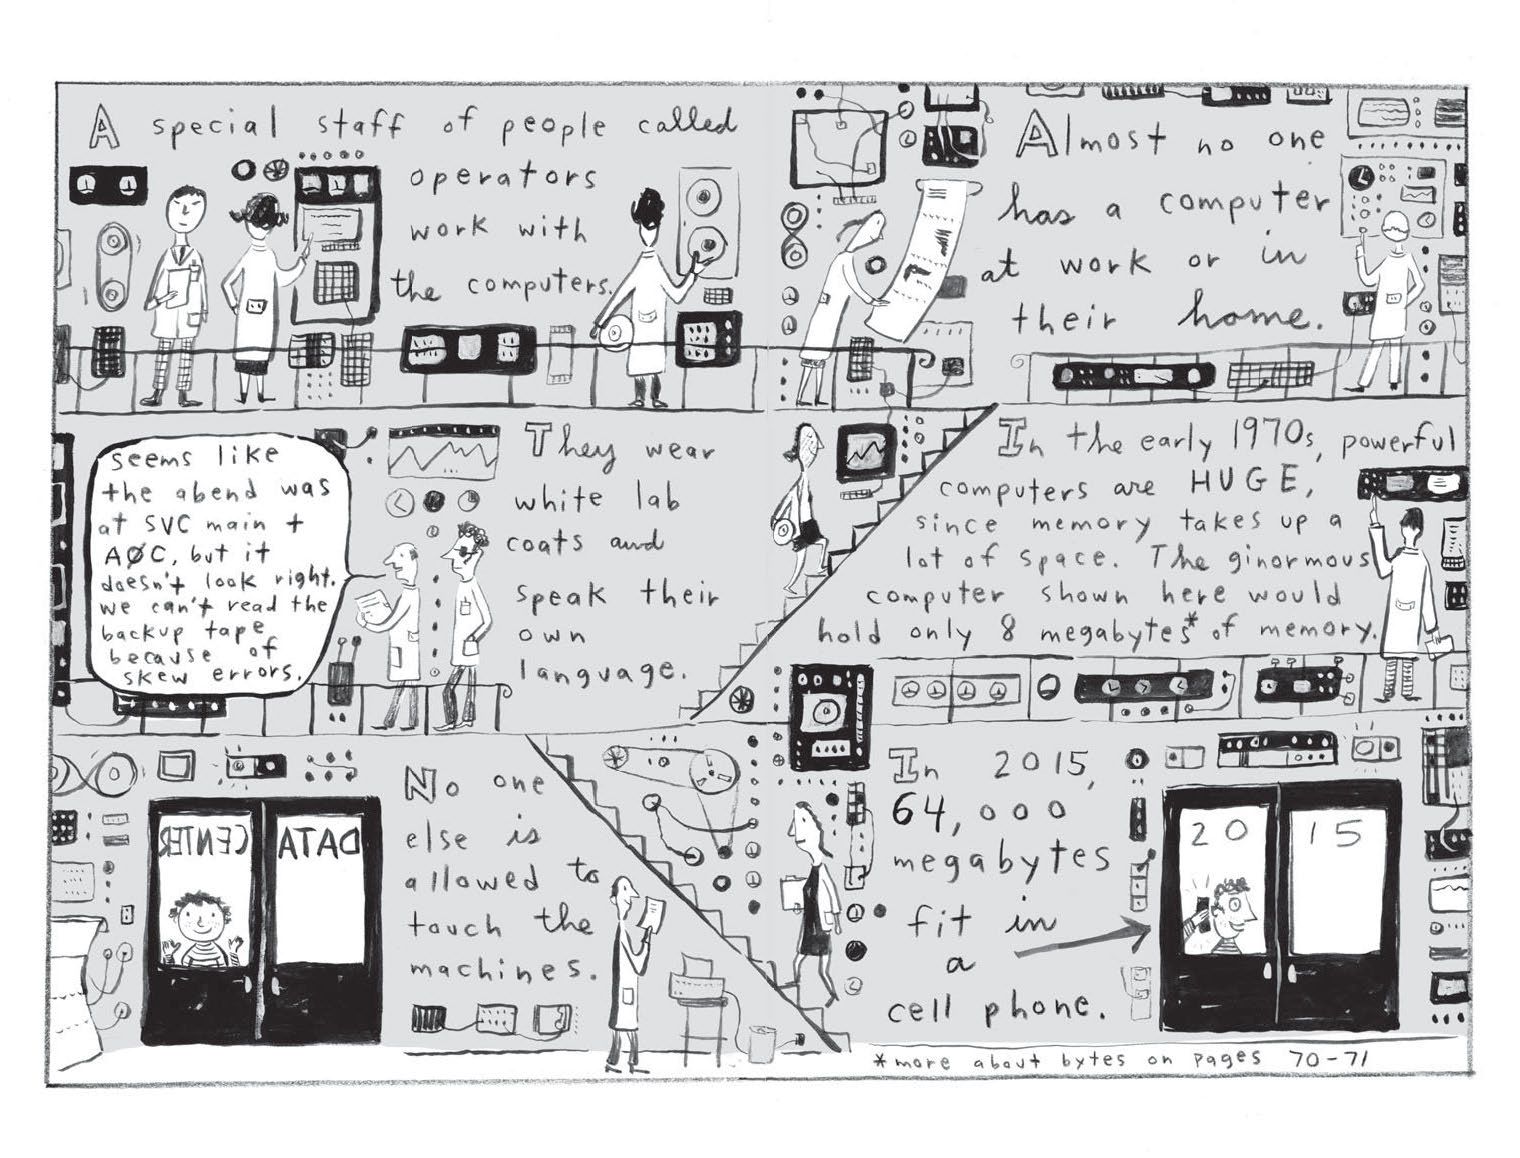 A special staff of people called
operators
work with
the computers.
Almost no one
has a computer
at work or in
their home.
seems like
the abend was
at SVC main +
AØC, but it
doesn't look right.
we can't read the
backup tape
because of
skew errors.
They wear
white lab
coats and
speak their
own
language.
In the early 1970s, powerful
computers are HUGE,
since memory takes up a
lot of space. The ginormous
computer shown here would
hold only 8 megabytes* of memory.
DATA CENTER
No one
else is
allowed to
touch the
machines.
In 2015,
64,000
megabytes
fit in
a
cell phone.
2015
*more about bytes on pages 70-71